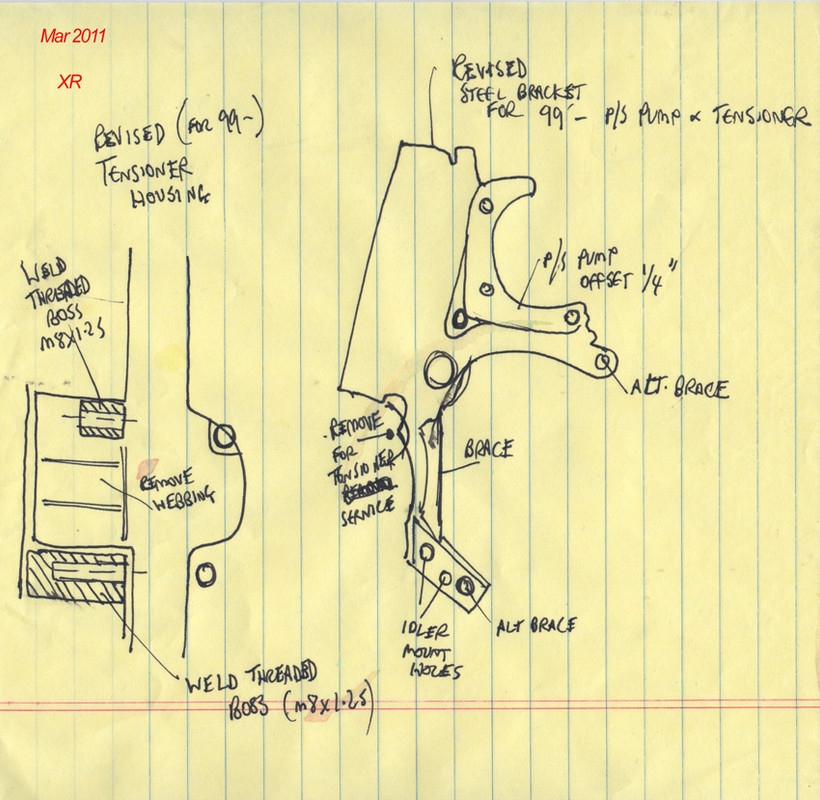 Mar 2011
XR
REVISED (FOR 99-)
TENSIONER
HOUSING
REVISED
STEEL BRACKET
FOR 99'- P/S PUMP & TENSIONER
WELD
THREADED
BOSS
M8X1.25
P/S PUMP
OFFSET 1/4"
ALT. BRACE
REMOVE
FOR
TENSIONER
SERVICE
BRACE
REMOVE
WEBBING
IDLER
MOUNT
HOLES
ALT BRACE
WELD THREADED
BOSS (M8X1.25)